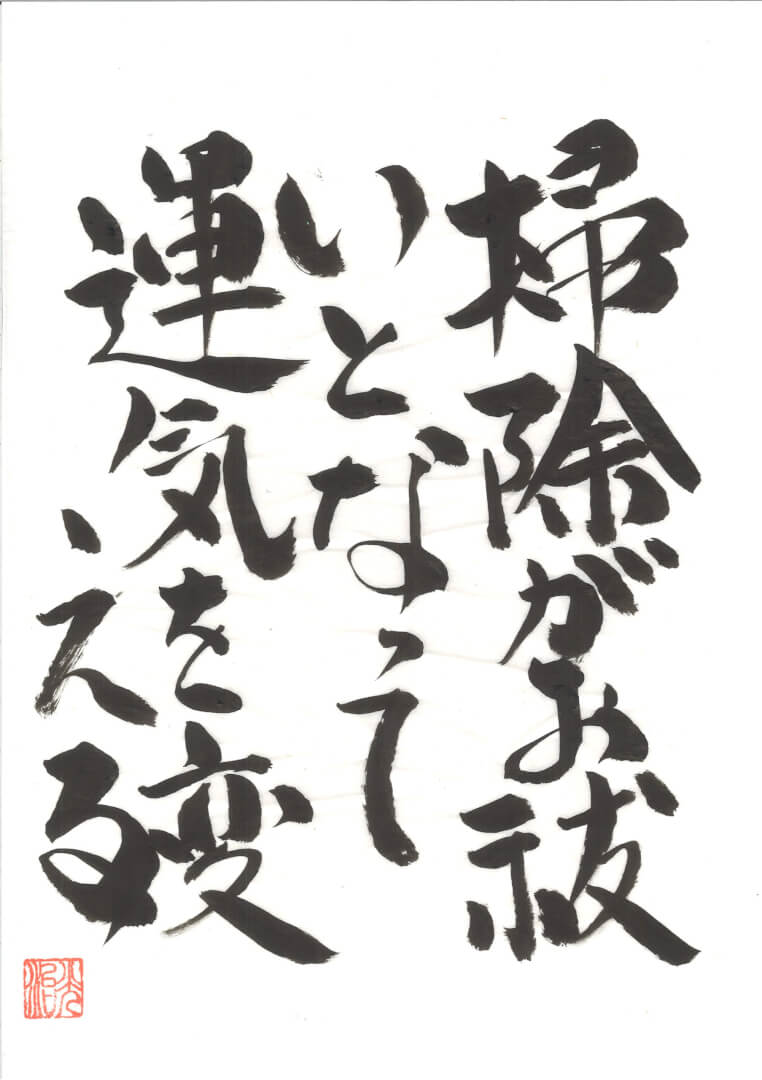 掃除がお祓
いとなって
運気を変
える